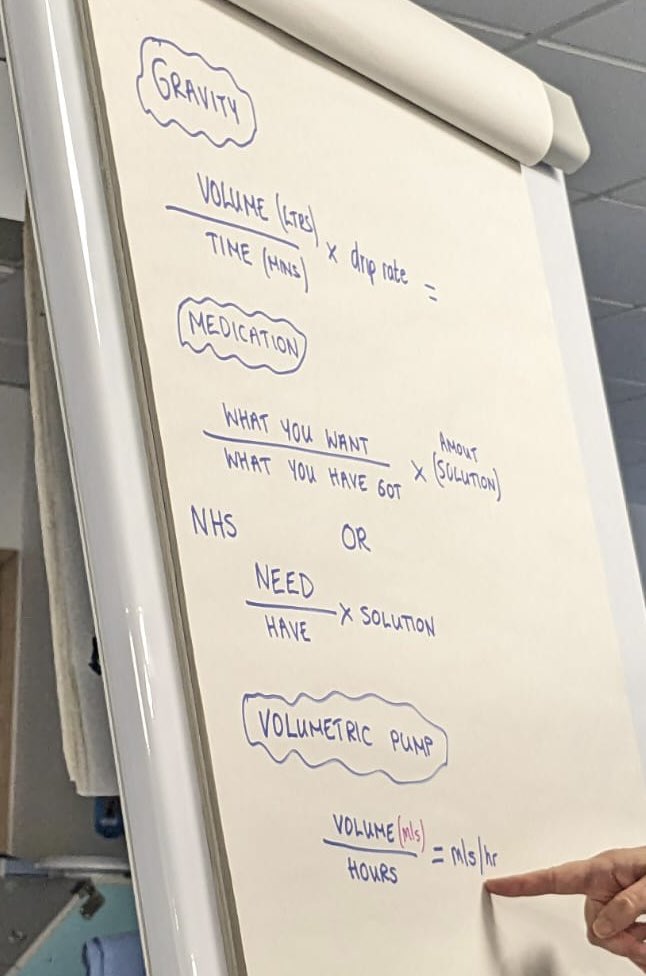 GRAVITY
VOLUME (LTRS)
TIME (MINS)
x drip rate =
MEDICATION
WHAT YOU WANT
WHAT YOU HAVE GOT
x AMOUT
(SOLUTION)
NHS OR
NEED
HAVE
x SOLUTION
VOLUMETRIC PUMP
VOLUME (mls)
HOURS
= mls/hr